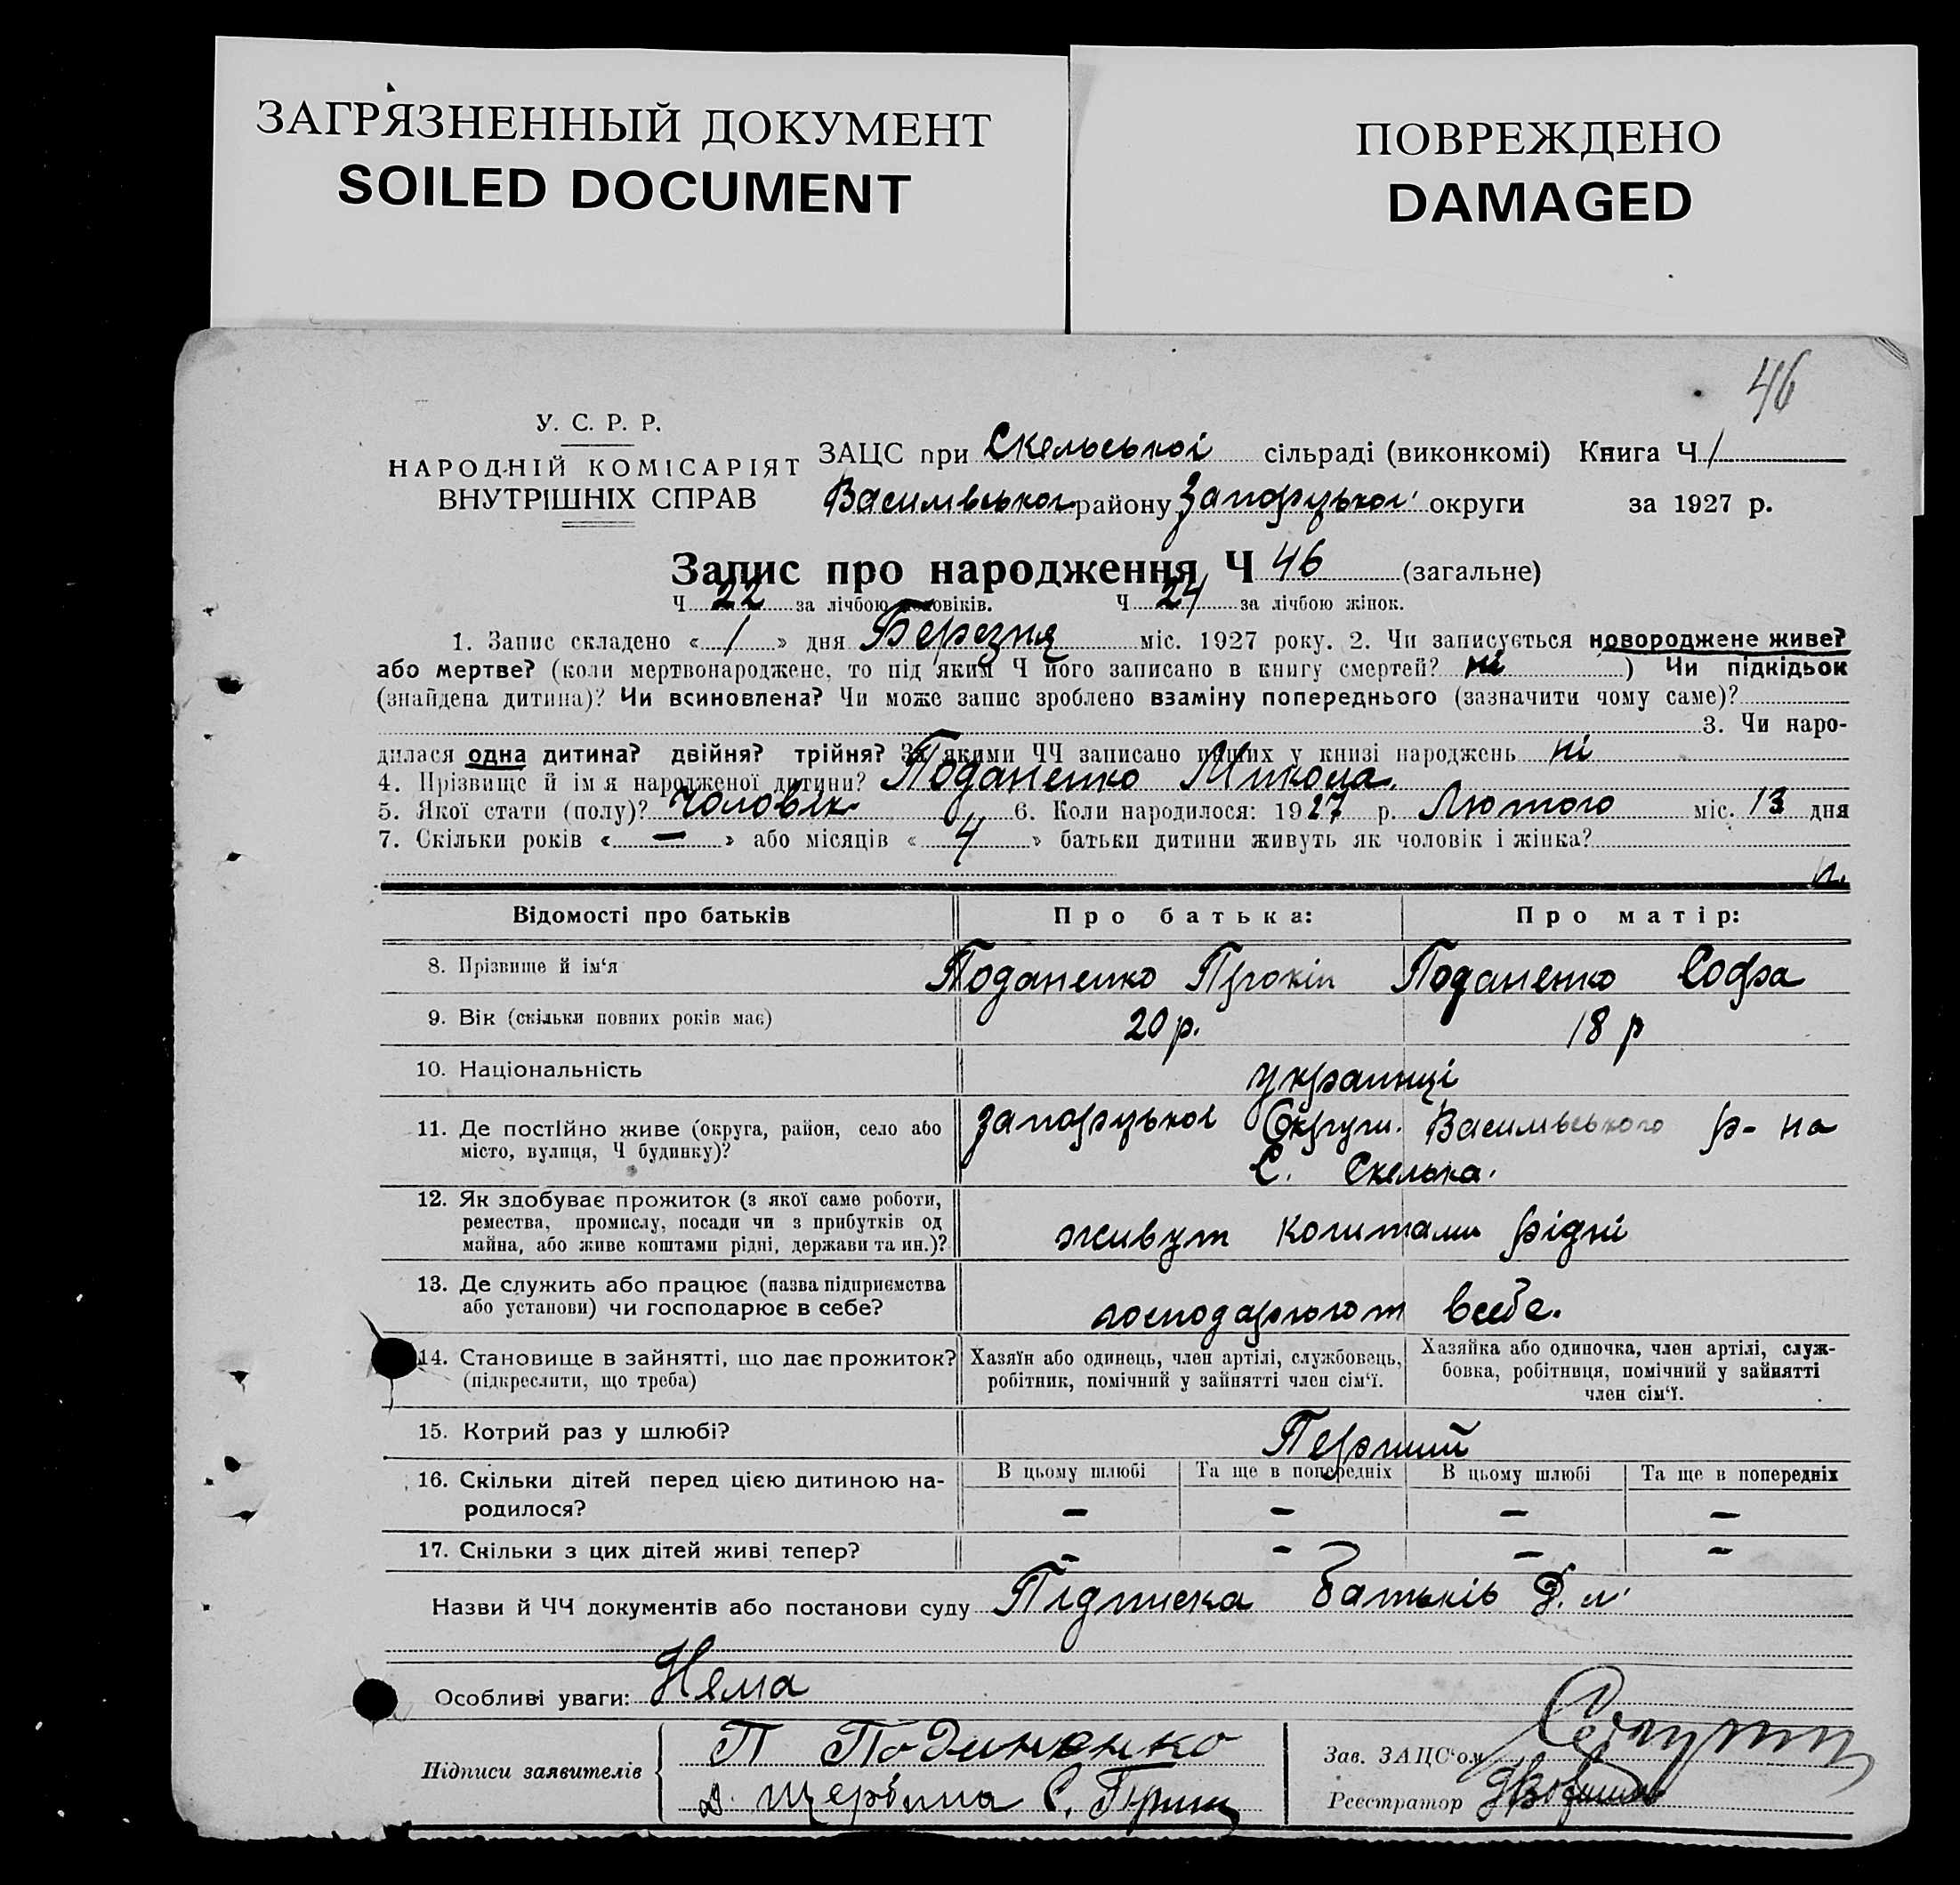 ЗАГРЯЗНЕННЫЙ ДОКУМЕНТ
SOILED DOCUMENT
ПОВРЕЖДЕНО
DAMAGED
46
У. С. Р. Р.
НАРОДНІЙ КОМІСАРІЯТ
ВНУТРІШНІХ СПРАВ
ЗАЦС при Скельської сільраді (виконкомі) Книга Ч 1
Василівськог району Запоріцької округи за 1927 р.
Запис про народження Ч 46 (загальне)
Ч 22 за лічбою чоловіків. Ч 24 за лічбою жінок.
1. Запис складено « 1 » дня Березня міс. 1927 року. 2. Чи записується новороджене живе?
або мертве? (коли мертвонароджене, то під яким Ч його записано в книгу смертей? ні ) Чи підкідьок
(знайдена дитина)? Чи всиновлена? Чи може запис зроблено взаміну попереднього (зазначити чому саме)?
3. Чи наро-
дилася одна дитина? двійня? трійня? За якими ЧЧ записано инших у книзі народжень ні
4. Прізвище й ім я народженої дитини? Поданенко Микола.
5. Якої стати (полу)? Чоловік 6. Коли народилося: 1927 р. Лютого міс. 13 дня
7. Скільки років « — » або місяців « 4 » батьки дитини живуть як чоловік і жінка?
Відомості про батьків Про батька: Про матір:
8. Прізвище й ім'я Поданенко Прокіп Поданенко Софа
9. Вік (скільки повних років має) 20 р. 18 р
10. Національність українці
11. Де постійно живе (округа, район, село або Запоріцької Округи. Василівського р-на
місто, вулиця, Ч будинку)? С. Скелька.
12. Як здобуває прожиток (з якої саме роботи,
ремества, промислу, посади чи з прибутків од
майна, або живе коштами рідні, держави та ин.)? живут коштами рідні
13. Де служить або працює (назва підприємства
або установи) чи господарює в себе? господарюют всебе.
14. Становище в зайнятті, що дає прожиток? Хазяїн або одинець, член артілі, службовець, Хазяйка або одиночка, член артілі, служ-
(підкреслити, що треба) робітник, помічний у зайнятті член сім'ї. бовка, робітниця, помічний у зайнятті
член сім'ї.
15. Котрий раз у шлюбі? Перший
16. Скільки дітей перед цією дитиною на- В цьому шлюбі Та ще в попередніх В цьому шлюбі Та ще в попередніх
родилося? — — — —
17. Скільки з цих дітей живі тепер? — — — —
Назви й ЧЧ документів або постанови суду Підписка Батьків
Особливі уваги: Нема
Підписи заявителів П Поданенко
Щербина С.
Зав. ЗАЦС'ом
Реєстратор